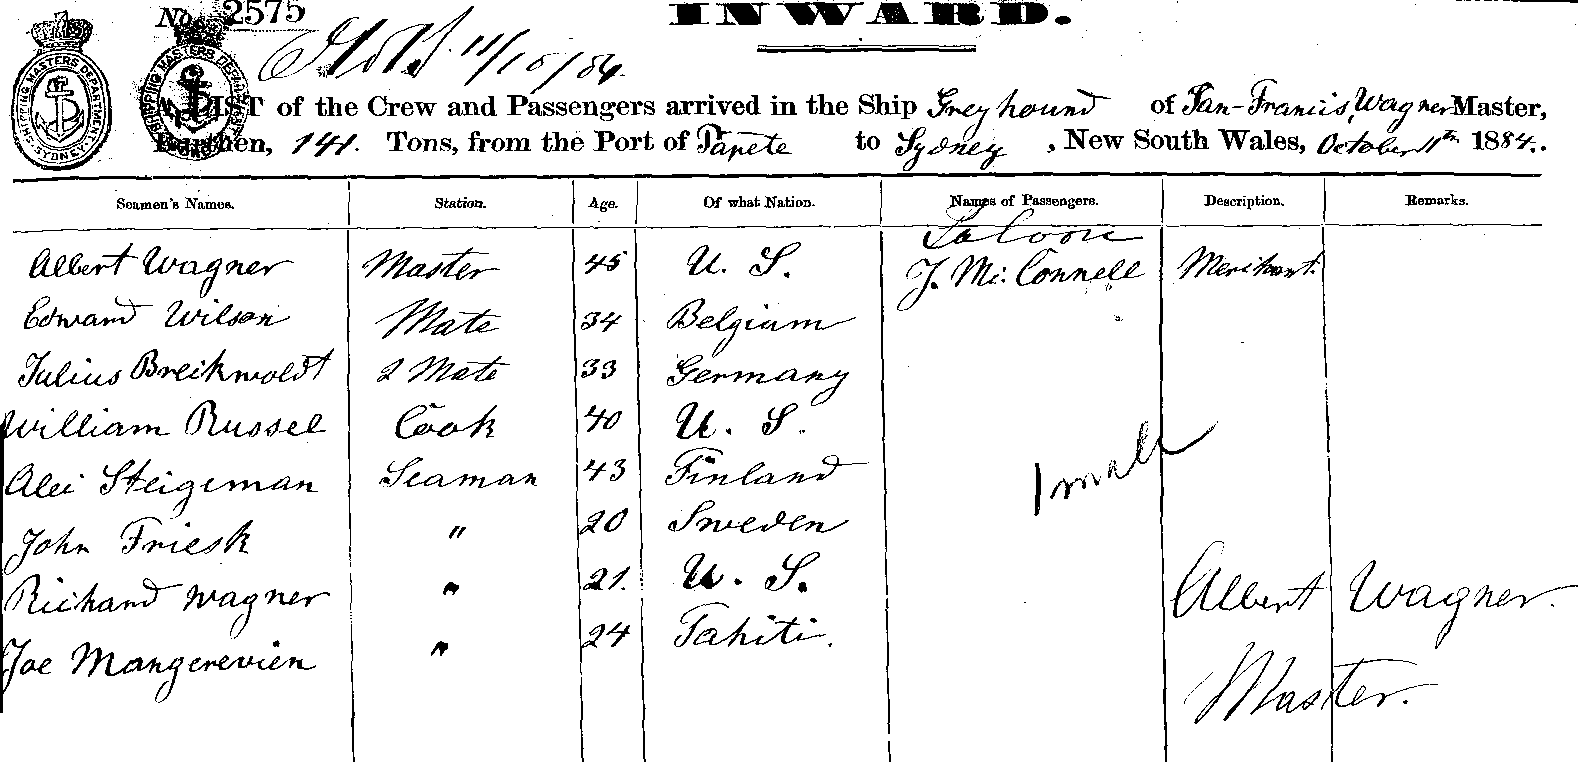 No. 2575
INWARD.
11/10/84.
SHIPPING MASTERS DEPARTMENT
SYDNEY
A LIST of the Crew and Passengers arrived in the Ship Greyhound of San-Francis, Wagner Master,
Burthen, 141. Tons, from the Port of Papete to Sydney, New South Wales, October 11th 1884.
Seamen's Names. Station. Age. Of what Nation. Names of Passengers. Description. Remarks.
Saloon
Albert Wagner Master 45 U. S. J. McConnell Merchant.
Edward Wilson Mate 34 Belgium
Julius Breikwoldt 2 Mate 33 Germany
William Russel Cook 40 U. S.
1 male
Alei Steigeman Seaman 43 Finland
John Friesk " 20 Sweden
Richard Wagner " 21. U. S.
Albert Wagner.
Joe Mangerevien " 24 Tahiti.
Master.